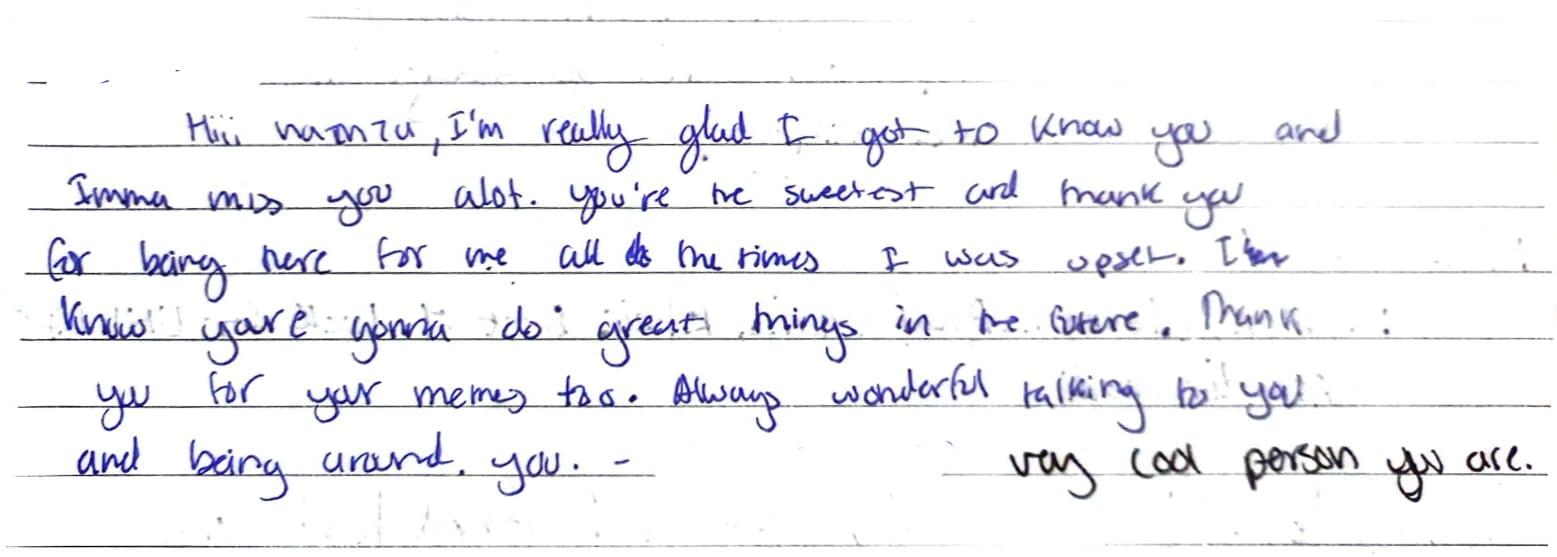 Hiii hamza, I'm really glad I got to know you and
Imma miss you alot. You're the sweetest and thank you
for being here for me all the times I was upset. I
know you're gonna do great things in the future. Thank
you for your memes too. Always wonderful talking to you
and being around you. -
very cool person you are.